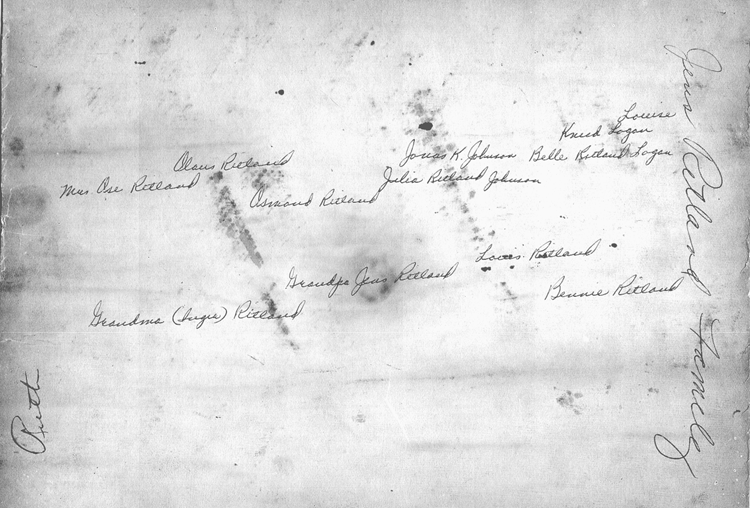 Jens Ritland Family
Louise
Knud Logan
Jonas K. Johnson Belle Ritland Logan
Olaus Ritland
Julia Ritland Johnson
Mrs Ose Ritland
Osmand Ritland
Louis Ritland
Grandpa Jens Ritland
Bennie Ritland
Grandma (Inger) Ritland
Ruth